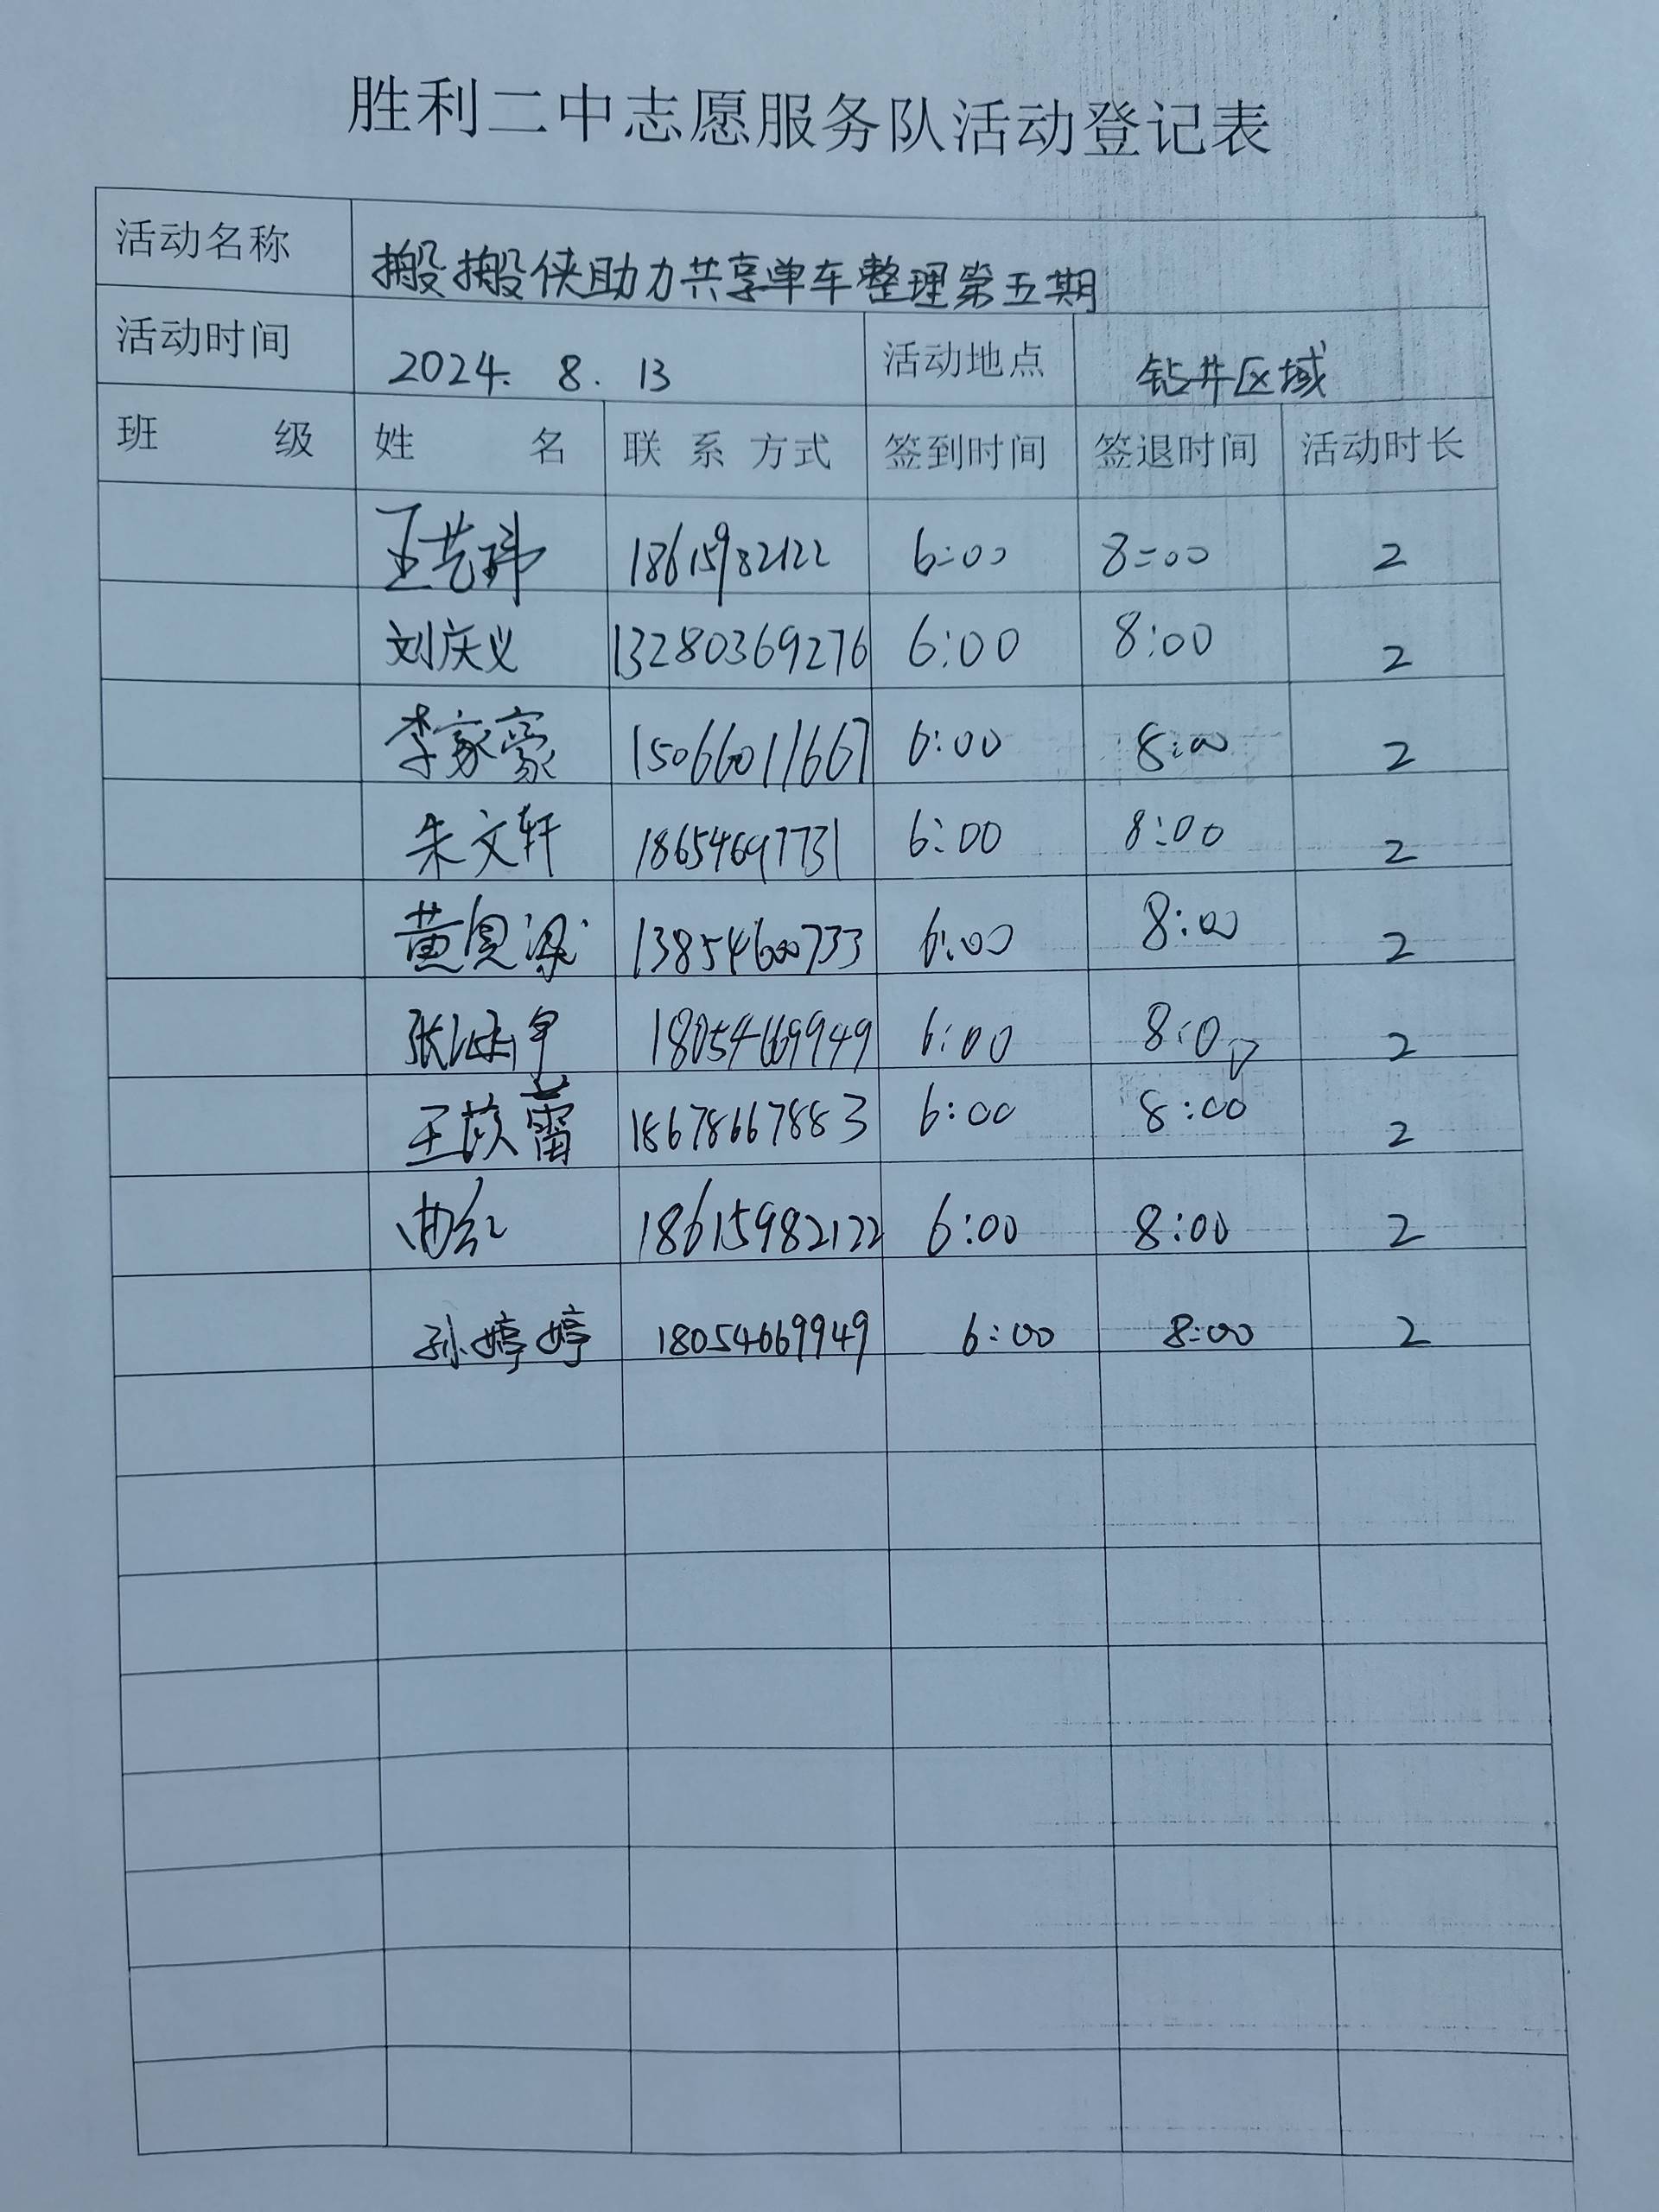 胜利二中志愿服务队活动登记表
活动名称 搬搬侠助力共享单车整理第五期
活动时间 2024. 8. 13 活动地点 钻井区域
班 级 姓 名 联 系 方式 签到时间 签退时间 活动时长
王艺玮 18615982122 6:00 8:00 2
刘庆义 13280369276 6:00 8:00 2
李家豪 15066011667 6:00 8:00 2
朱文轩 18654697731 6:00 8:00 2
黄奠梁 13854600733 6:00 8:00 2
张 18054669949 6:00 8:00 2
王 蕾 18678667883 6:00 8:00 2
曲红 18615982122 6:00 8:00 2
孙婷婷 18054669949 6:00 8:00 2